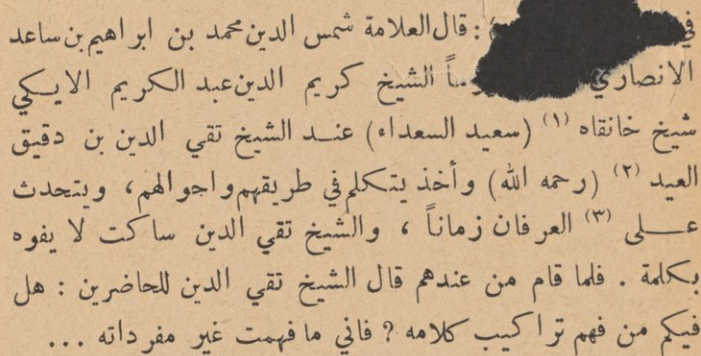 في : قال العلامة شمس الدين محمد بن ابراهيم بن ساعد
الانصاري الشيخ كريم الدين عبد الكريم الايكي
شيخ خانقاه (١) (سعيد السعداء) عنــد الشيخ تقي الدين بن دقيق
العيد (٢) (رحمه الله) وأخذ يتكلم في طريقهم واحوالهم، ويتحدث
عــلى (٣) العرفان زماناً ، والشيخ تقي الدين ساكت لا يفوه
بكلمة . فلما قام من عندهم قال الشيخ تقي الدين للحاضرين : هل
فيكم من فهم تراكيب كلامه ? فاني ما فهمت غير مفرداته ...